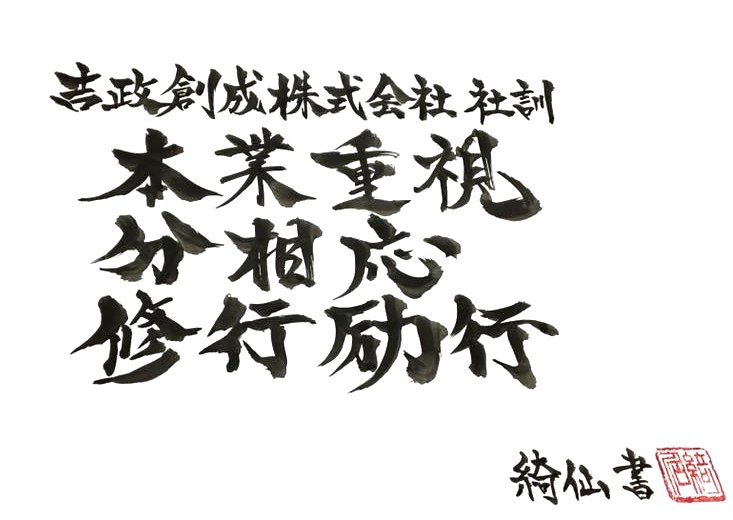 吉政創成株式会社 社訓
本業重視
分相応
修行励行
綺仙書